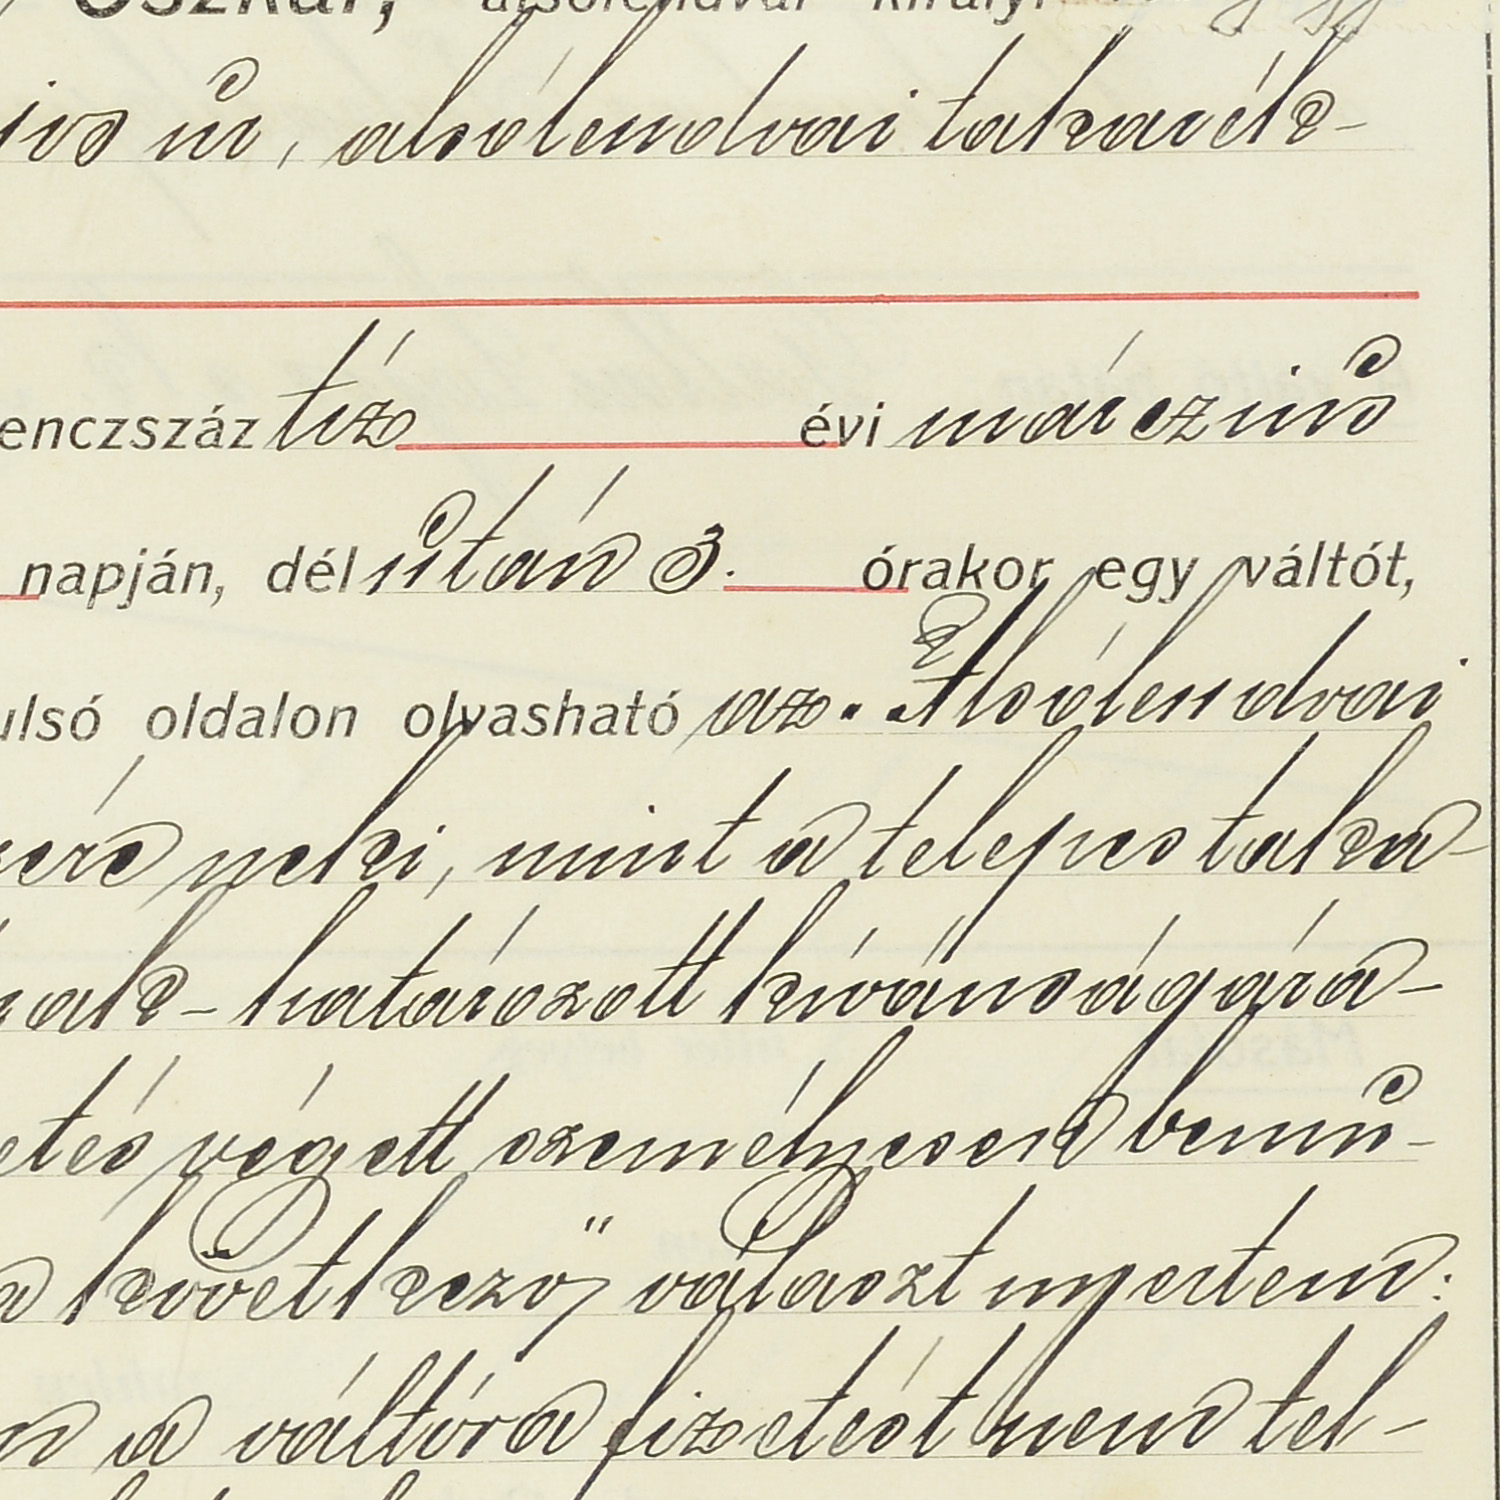 Oszkár, alsólendvai királyi
úr, alsólendvai takarék-
enczszáz tiz évi márczius
napján, délután 3. órakor egy váltót,
ulsó oldalon olvasható az Alsólendvai
neki, mint a telepes taka-
határozott kívánságára-
etés végett személyesen bemu-
a következő választ nyertem:
a váltóra fizetést nem tel-